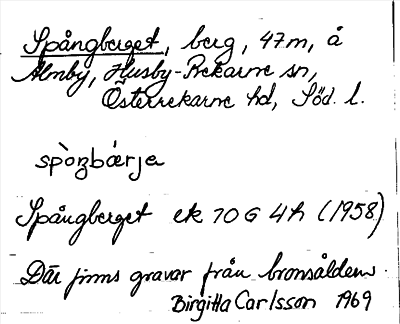 Spångberget, berg, 47m, å
Älmby, Husby-Rekarne sn,
Österrekarne hd, Söd. l.
spòŋbær̀ja
Spångberget ek 70 G 4h (1958)
Där finns gravar från bronsåldern.
Birgitta Carlsson 1969